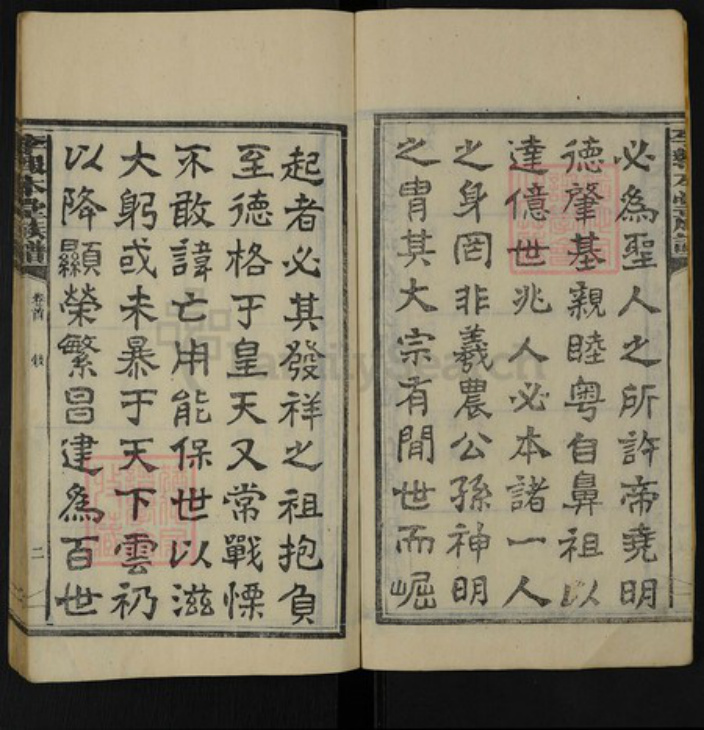 必為聖人之所許帝堯明
德肇基親睦粤自鼻祖以
達億世兆人必本諸一人
之身罔非羲農公孫神明
之胄其大宗有閒世而崛
起者必其發祥之祖抱負
至德格于皇天又常戰慄
不敢諱亡用能保世以滋
大躬或未暴于天下雲礽
以降顯榮繁昌建為百世
卷首
二
FamilySearch